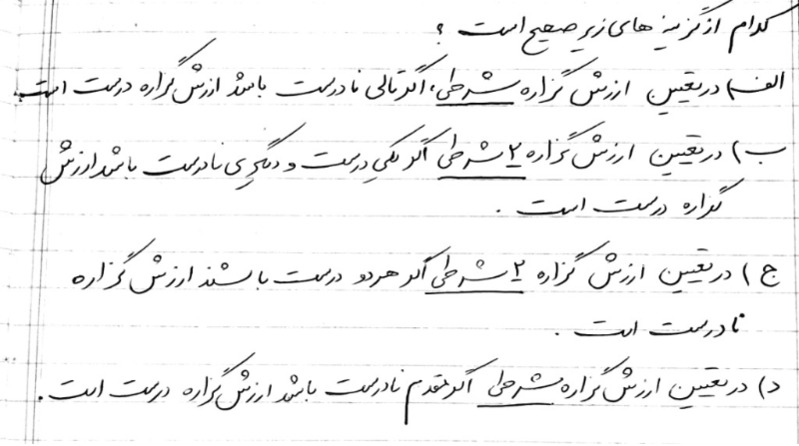 کدام از گزینه های زیر صحیح است ؟
الف) در تعیین ارزش گزاره شرطی، اگر تالی نادرست باشد ارزش گزاره درست است.
ب) در تعیین ارزش گزاره ۲ شرطی اگر یکی درست و دیگری نادرست باشد ارزش
گزاره درست است .
ج) در تعیین ارزش گزاره ۲ شرطی اگر هر دو درست باشند ارزش گزاره
نادرست است .
د) در تعیین ارزش گزاره شرطی اگر مقدم نادرست باشد ارزش گزاره درست است .